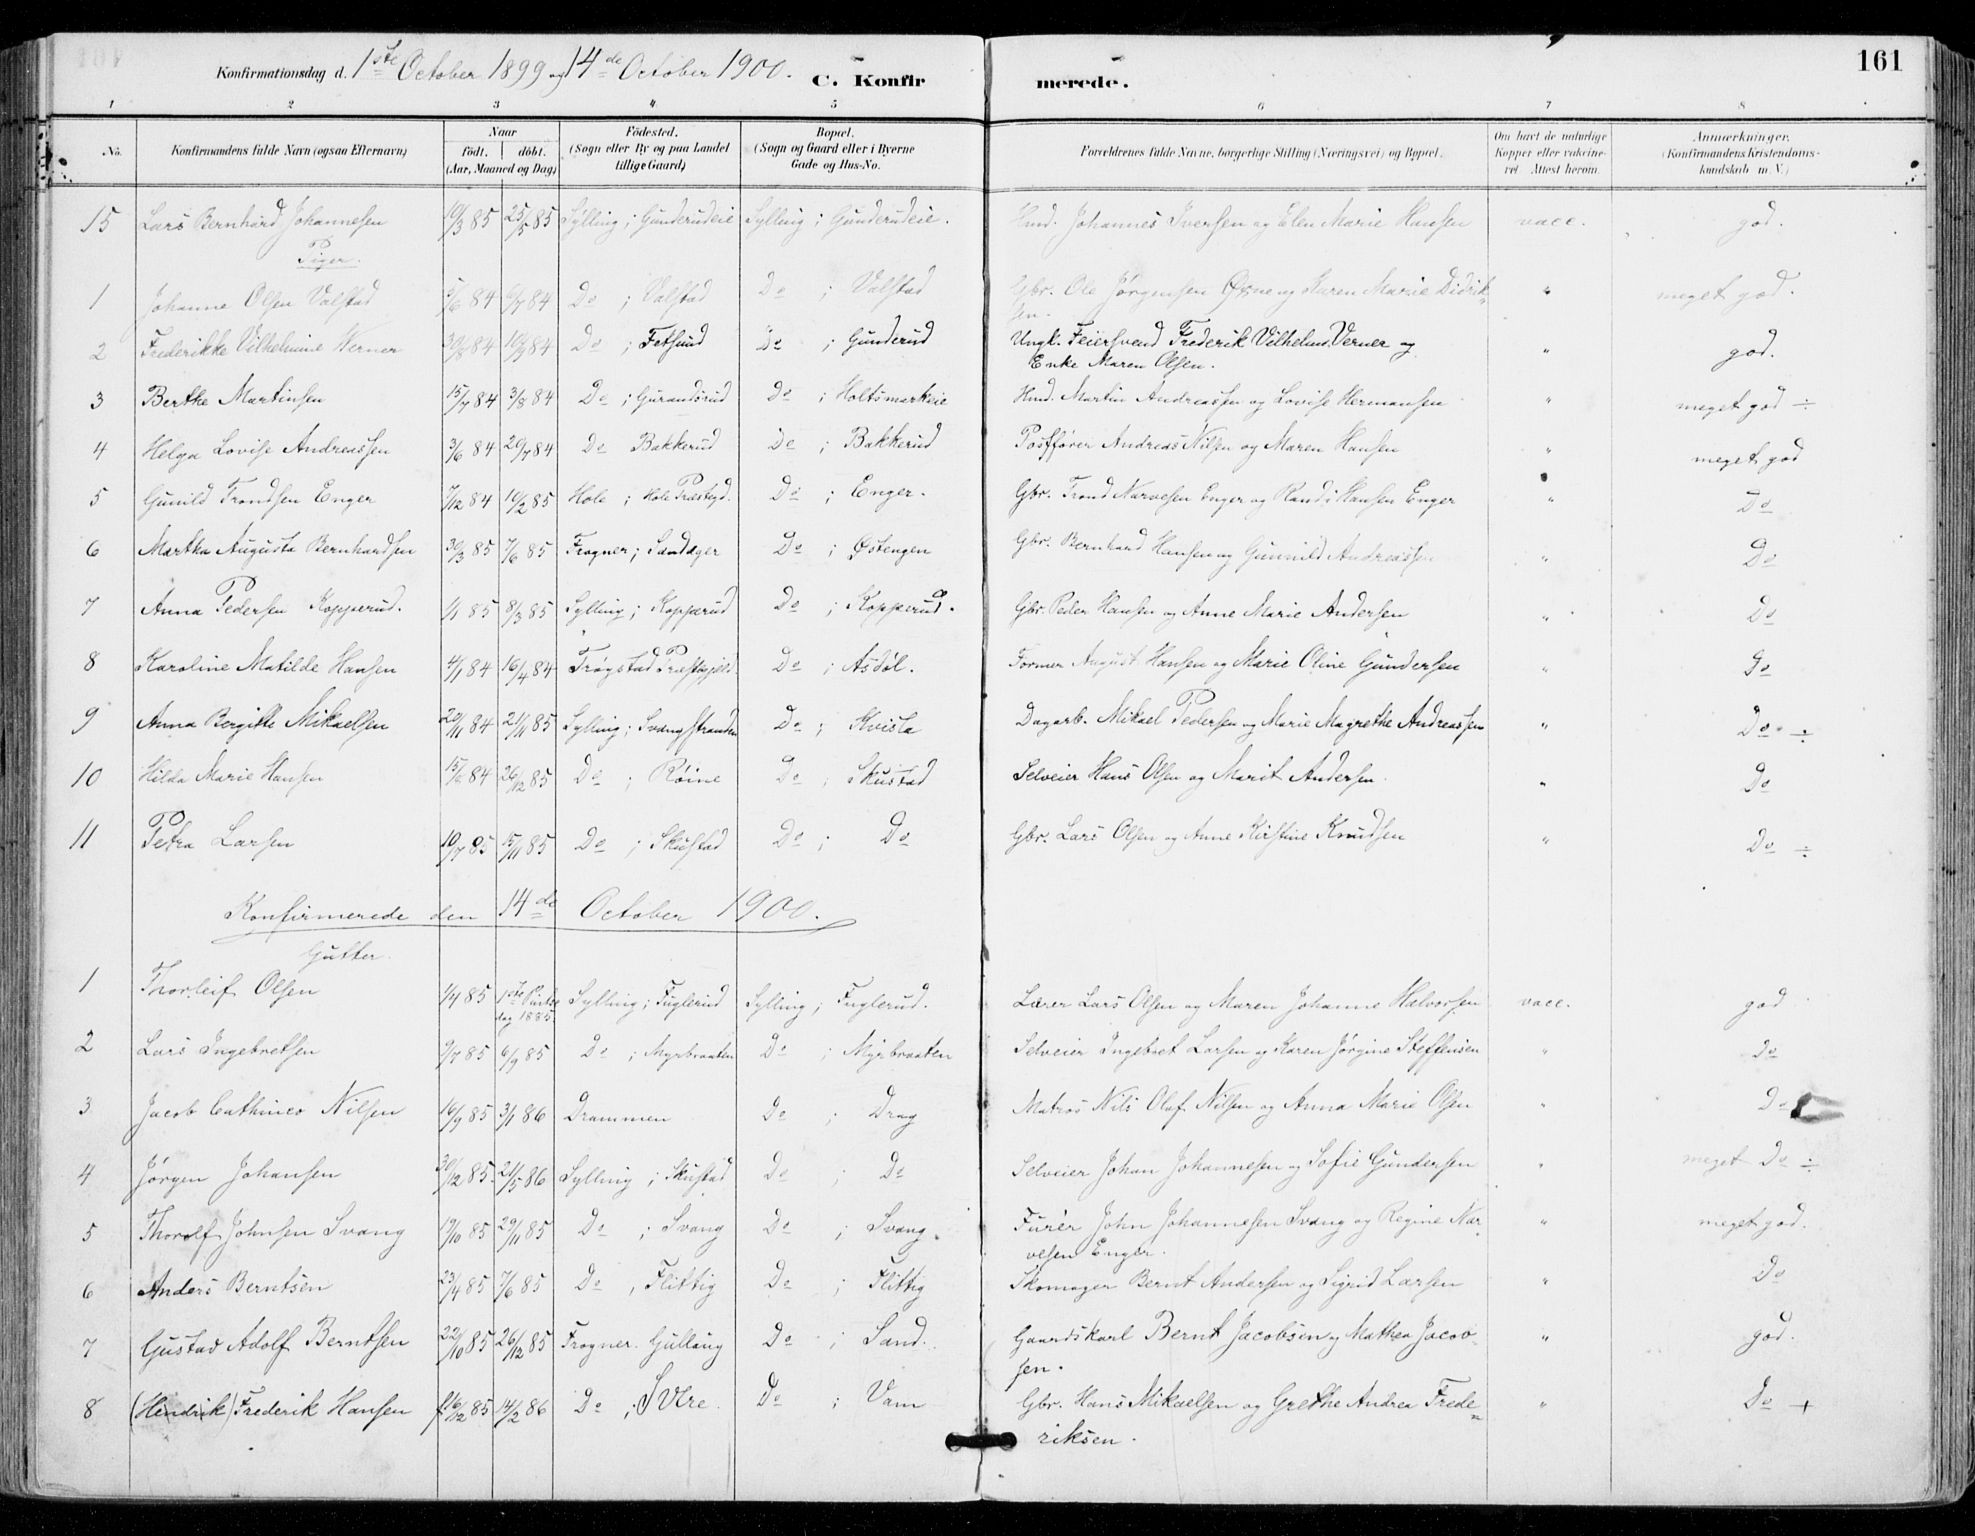 Konfirmationsdag d. 1ste October 1899 og 14de October 1900. C. Konfirmerede. 161
1 2 3 4 5 6 7 8
No. Konfirmandens fulde Navn (ogsaa Efternavn) Naar født. døbt. (Aar, Maaned og Dag) Fødested. (Sogn eller By og paa Landet tillige Gaard) Bopæl. (Sogn og Gaard eller i Byerne Gade og Hus-No. Forældrenes fulde Navne, borgerlige Stilling (Næringsvei) og Bopæl. Om havt de naturlige Kopper eller vakcineret. Attest herom. Anmærkninger. (Konfirmandens Kristendomskundskab m. V.)
15 Lars Bernhard Johannesen 10/3 85 25/5 85 Sylling ; Gunderudeie Sylling ; Gunderudeie. Hmd. Johannes Iversen og Elen Marie Hansen vacc. god.
Piger.
1 Johanne Olsen Valstad 5/6 84 6/7 84 Do ; Valstad Do ; Valstad Gbr. Ole Jørgensen Øvne og Karen Marie Didriksen. " meget god.
2 Frederikke Vilhelmine Werner 30/8 84 10/9 84 Do ; Fetsund Do ; Gunderud Ungk. Feiersvend Frederik Vilhelm Verner og
Enke Maren Olsen. " god.
3 Berthe Martinsen 15/7 84 3/8 84 Do ; Gurandsrud Do ; Holtsmarkeie Hmd. Martin Andreassen og Lovise Hermansen " meget god ÷
4 Helga Lovise Andreassen 3/6 84 20/7 84 Do Bakkerud Do ; Bakkerud Postfører Andreas Nilsen og Maren Hansen " meget god
5 Gunild Trondsen Enger 7/12 84 10/2 85 Hole ; Hole Præstegd. Do ; Enger. Gbr. Trond Narvesen Enger og Randi Hansen Enger " Do
6 Martha Augusta Bernhardsen 30/3 85 7/6 85 Frogner ; Sandager Do ; Østengen Gbr. Bernhard Hansen og Gunnild Andreassen " Do
7 Anna Pedersen Kopperud. 1/1 85 8/3 85 Sylling ; Kopperud Do ; Kopperud. Gbr. Peder Hansen og Anne Marie Andersen " Do
8 Karoline Matilde Hansen 4/1 84 16/4 84 Trøgstad Præstegjeld Do ; Asdøl. Former August Hansen og Marie Oline Gundersen " Do
9 Anna Bergitte Mikaelsen 20/11 84 21/11 85 Sylling ; Svangstranden Do ; Kvisla Dagarb. Mikael Pedersen og Marie Magrethe Andreassen " Do ÷
10 Hilda Marie Hansen 15/6 84 26/12 85 Do ; Røine Do ; Skustad Selveier Hans Olsen og Marit Andersen " Do
11 Petra Larsen 10/7 85 15/11 85 Do ; Skustad Do ; Do Gbr. Lars Olsen og Anne Kirstine Knudsen " Do ÷
Konfirmerede den 14de October 1900.
Gutter.
1 Thorleif Olsen 1/4 85 1ste Pintsedag 1885. Sylling ; Fuglerud Sylling ; Fuglerud. Lærer Lars Olsen og Maren Johanne Halvorsen vacc. god
2 Lars Ingebretsen 9/7 85 6/9 85 Do ; Myrbraaten Do ; Myrbraaten Selveier Ingebret Larsen og Karen Jørgine Steffensen " Do
3 Jacob Cathinco Nilsen 16/9 85 3/1 86 Drammen Do ; Drag Matros Nils Olaf Nilsen og Anna Marie Olsen " Do
4 Jørgen Johansen 30/12 85. 21/5 86 Sylling ; Skustad Do ; Do Selveier Johan Johannesen og Sofie Gundersen " meget Do ÷
5 Thorolf Johnsen Svang 19/10 85 29/11 85 Do ; Svang Do ; Svang. Furér John Johannesen Svang og Regine Narvesen Enger. " meget god.
6 Anders Berntsen 23/4 85 7/6 85 Do ; Flittig Do ; Flittig Skomager Bernt Andersen og Sigrid Larsen " Do
7 Gustav Adolf Berntsen 22/10 85 26/12 85 Frogner. Gullaug Do ; Sand. Gaardskarl Bernt Jacobsen og Mathea Jacobsen. " god.
8 (Hendrik) Frederik Hansen 16/12 85 14/2 86 Do ; Svere. Do ; Vam Gbr. Hans Mikaelsen og Grethe Andrea Frederiksen. " Do +